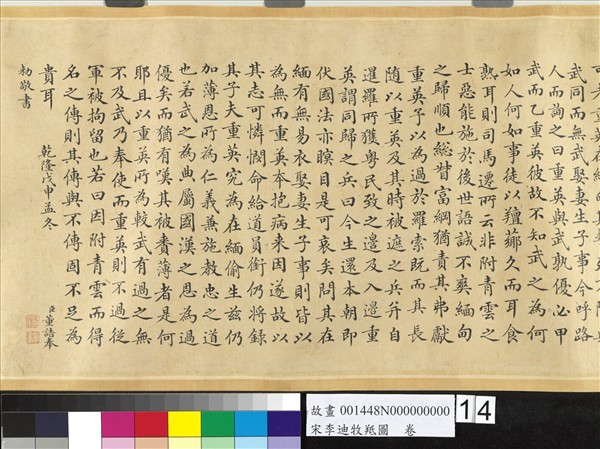 武同而無武娶妻生子事今呼路
人而詢之曰重英與武孰優必甲
武而乙重英彼故不知武之為何
如人何如事徒以羶薌久而耳食
熟耳則司馬遷所云非附青雲之
士惡能施於後世語誠不爽緬甸
之歸順也總督富綱猶責其弗獻
重英予以為過於羅索既而其長
随以重英及其時被遮之兵弁自
暹羅所獲粵民致之邊及入邊重
英謂同歸之兵曰今生還本朝即
伏國法亦瞑目是可哀矣問其在
緬有無易衣娶妻生子事則皆以
為無而重英本抱病来因遂故以
其志可憐憫命給道員銜仍将録
其子夫重英究為在緬偷生兹仍
加薄恩所為仁義兼施教忠之道
也若武之為典屬國漢之恩為過
優矣而猶有嘆其被賚薄者是何
耶且以重英所為較武有過之無
不及武乃奉使而重英則不過從
軍被拘留也若曰因附青雲而得
名之傳則其傳與不傳固不足為
貴耳
乾隆戊申孟冬
臣董誥奉
勅敬書
故畫 001448N000000000
宋李迪牧羝圖 卷
14